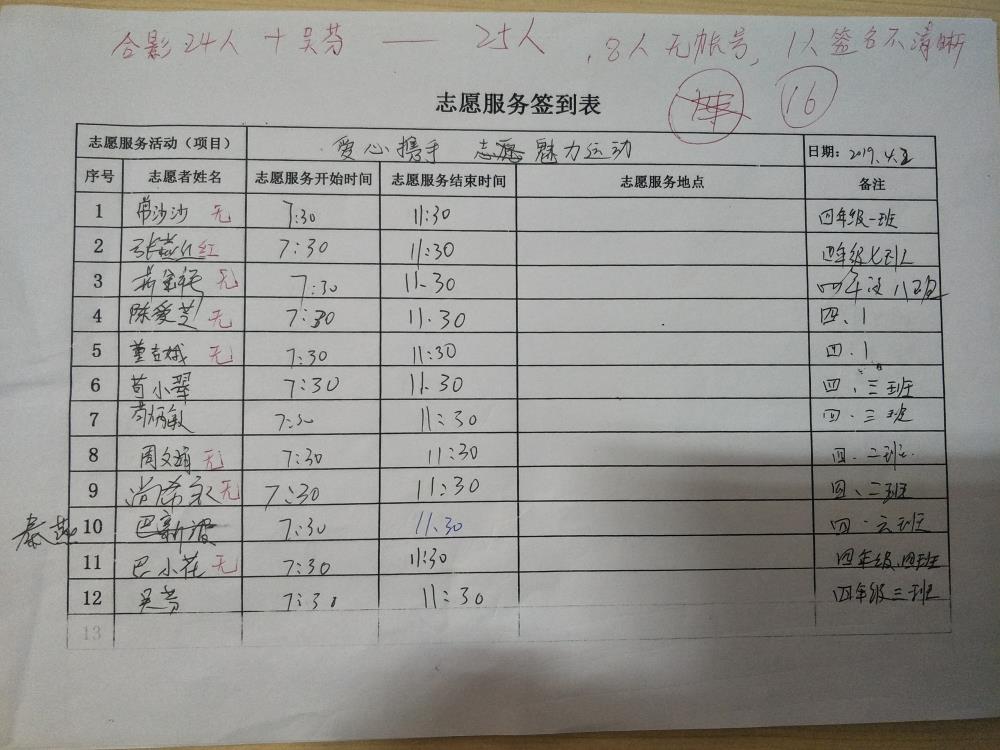 合影24人 + 吴芬 —— 25人 ,8人无帐号, 1人签名不清晰
16
志愿服务签到表
志愿服务活动（项目） 爱心携手 志愿魅力运动 日期：2019.4.
序号 志愿者姓名 志愿服务开始时间 志愿服务结束时间 志愿服务地点 备注
1 常沙沙 无 7:30 11:30 四年级一班
2 红 7:30 11:30 四年级七班
3 无 7:30 11.30 四年级八班
4 陈爱芝 无 7:30 11.30 四、1
5 无 7:30 11:30 四.1
6 苟小翠 7:30 11.30 四、三班
7 苟炳敏 7:30 11:30 四.三班
8 周文娟 无 7:30 11:30 四.二班
9 尚希永 无 7:30 11:30 四、二班
秦 10 巴新波 7:30 11.30 四.六班
11 巴小花 无 7:30 11:30 四年级、四班
12 吴芬 7:30 11:30 四年级三班
13